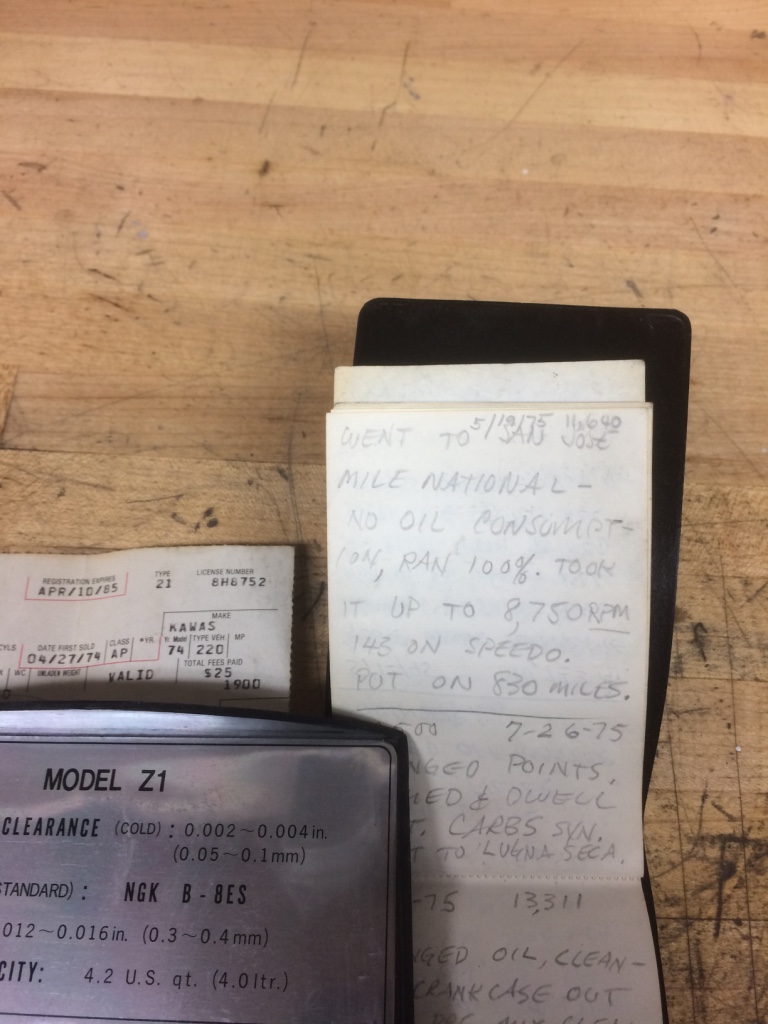 5/19/75 11,640
WENT TO SAN JOSE
MILE NATIONAL -
NO OIL CONSUMPT-
ION, RAN 100%. TOOK
IT UP TO 8,750 RPM
143 ON SPEEDO.
PUT ON 830 MILES.
500 7-26-75
NGED POINTS,
MED & DWELL
T. CARBS SYN.
T TO LUGNA SECA.
-75 13,311
NGED OIL, CLEAN-
CRANKCASE OUT
REGISTRATION EXPIRES TYPE LICENSE NUMBER
APR/10/85 21 8H8752
MAKE
KAWAS
CYLS DATE FIRST SOLD CLASS *YR. Yr. Model TYPE VEH MP
04/27/74 AP 74 220
WC UNLADEN WEIGHT TOTAL FEES PAID
0 VALID $25
1900
MODEL Z1
CLEARANCE (COLD) : 0.002~0.004 in.
(0.05~0.1mm)
STANDARD) : NGK B-8ES
012~0.016 in. (0.3~0.4mm)
CITY: 4.2 U.S. qt. (4.0 ltr.)